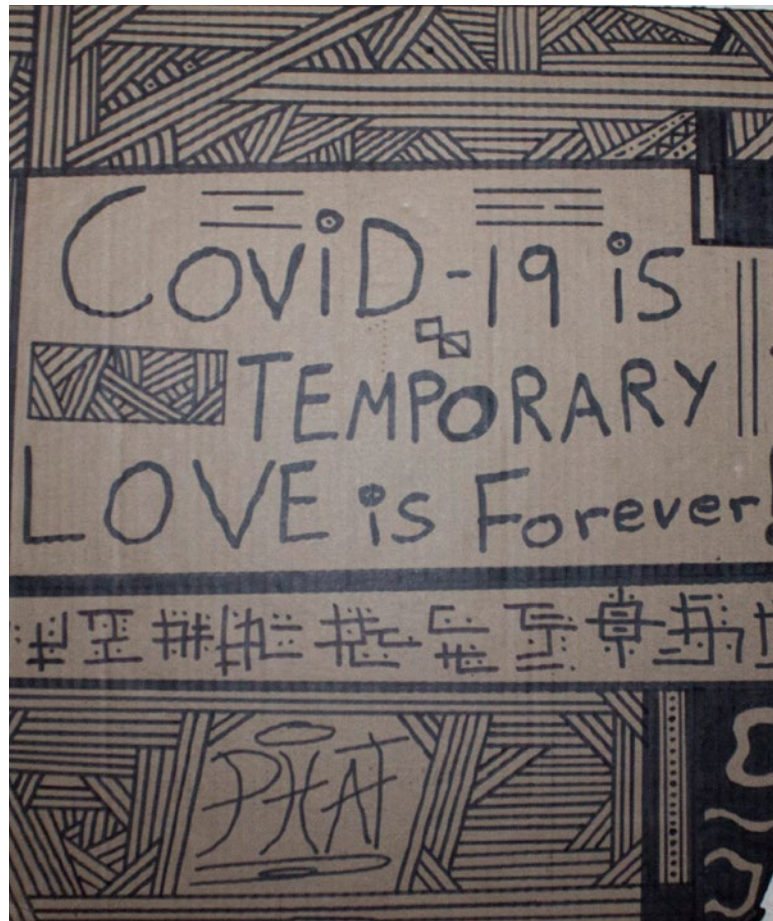 COViD-19 is
TEMPORARY
LOVE is Forever!
PHAT